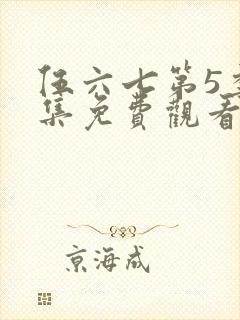 伍六七第5季
集免費觀看
京海成